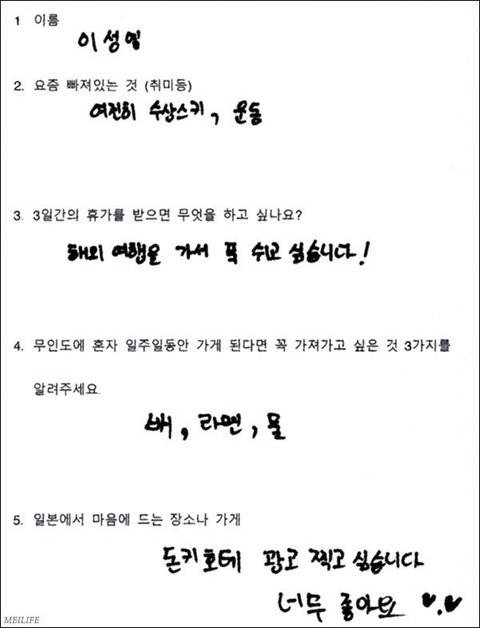 1 이름
이성열
2. 요즘 빠져있는 것 (취미등)
여전히 수상스키, 운동
3. 3일간의 휴가를 받으면 무엇을 하고 싶나요?
해외 여행을 가서 푹 쉬고 싶습니다!
4. 무인도에 혼자 일주일동안 가게 된다면 꼭 가져가고 싶은 것 3가지를
알려주세요.
배, 라면, 물
5. 일본에서 마음에 드는 장소나 가게
돈키호테 광고 찍고 싶습니다
너무 좋아요 ♥.♥
MEILIFE